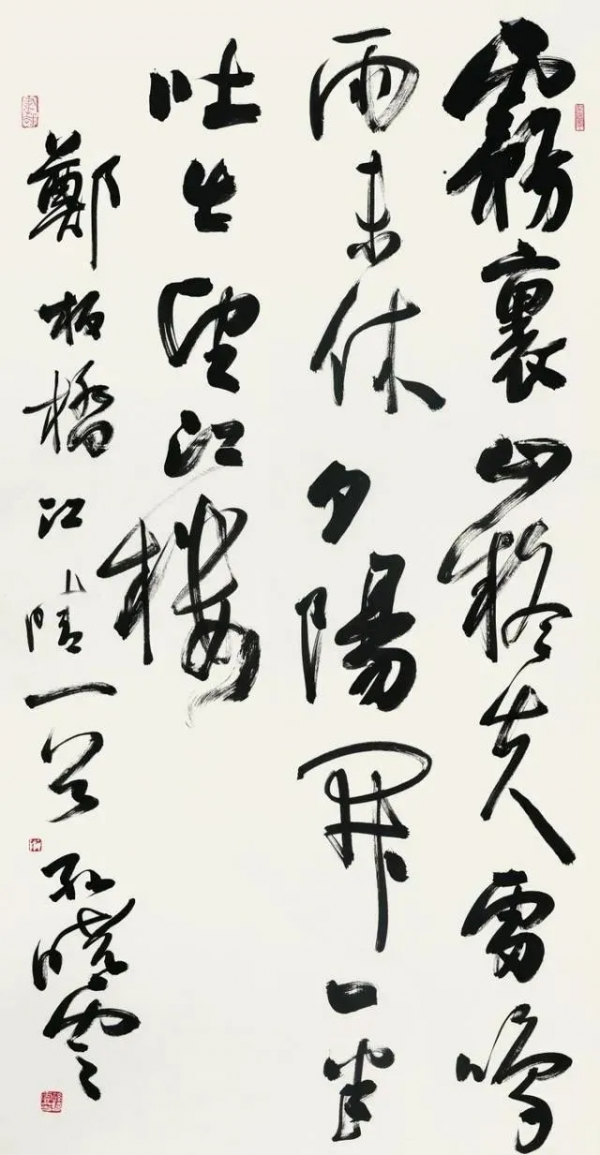 霧裏山疑失雷鳴
雨未休夕陽開一半
吐出望江樓
鄭板橋江上晴一首孫曉雲